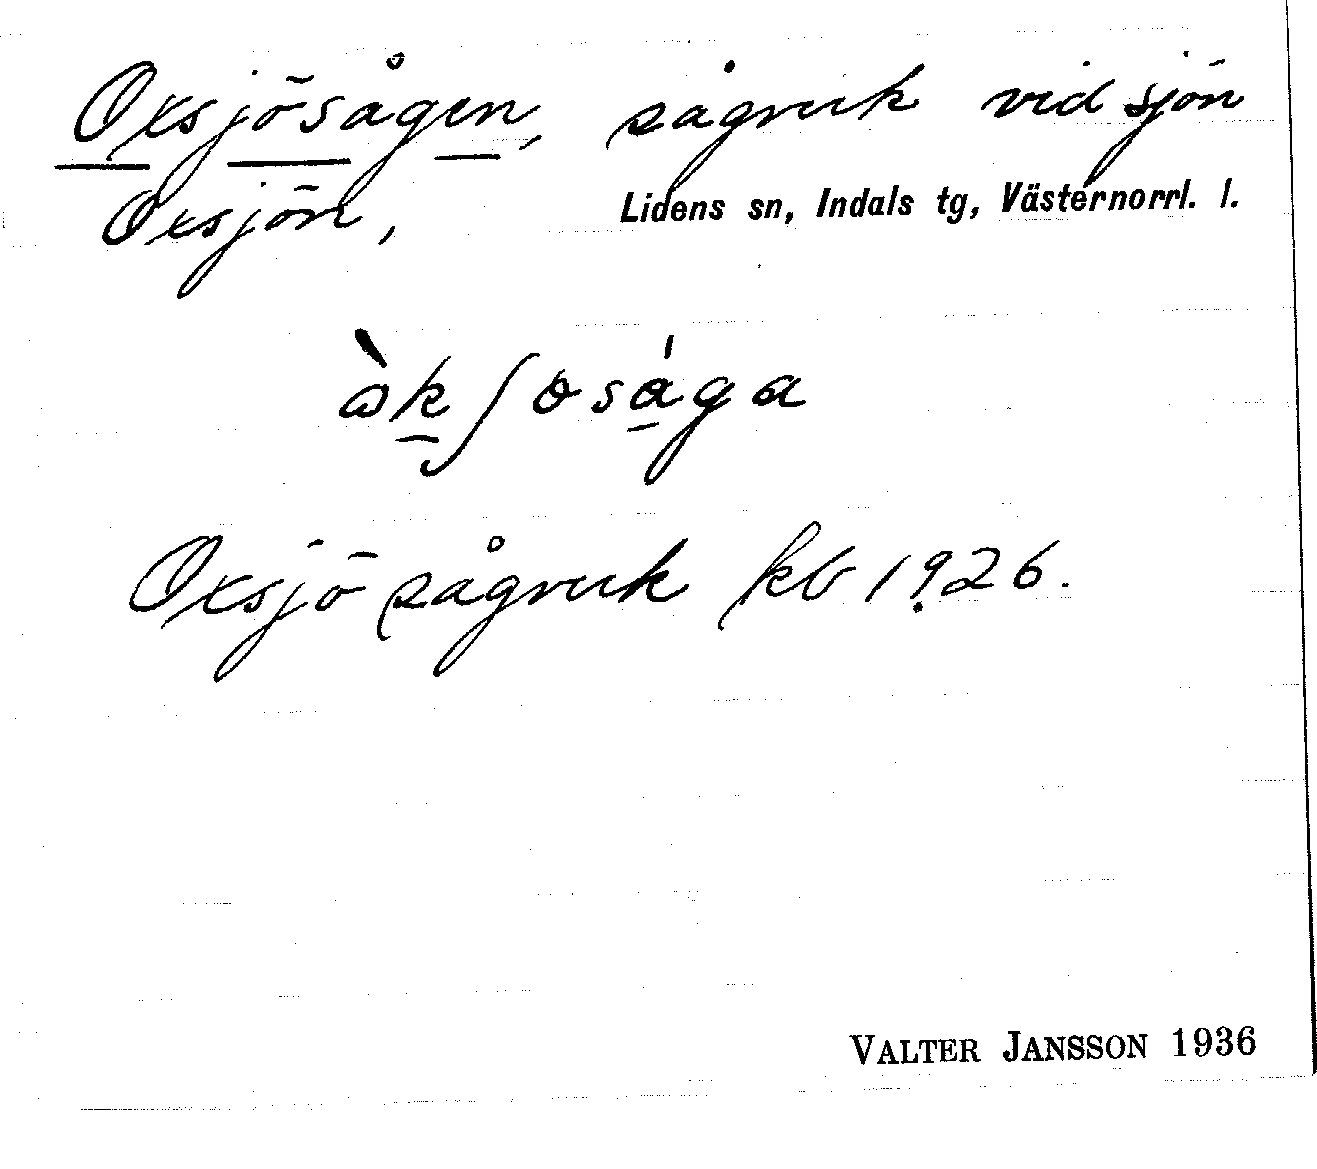 Oxsjösågen, sågverk vid sjön
Oxsjön, Lidens sn, Indals tg, Västernorrl. l.
Oxsjö sågverk kb 1926.
VALTER JANSSON 1936